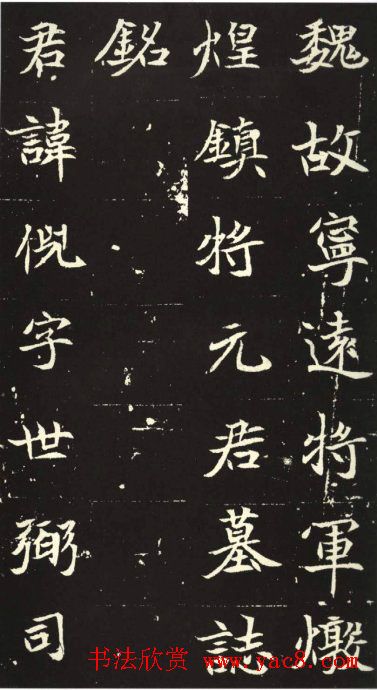 魏故寧遠將軍燉
煌鎮將元君墓誌
銘
君諱倪字世弼司
书法欣赏 www.yac8.com